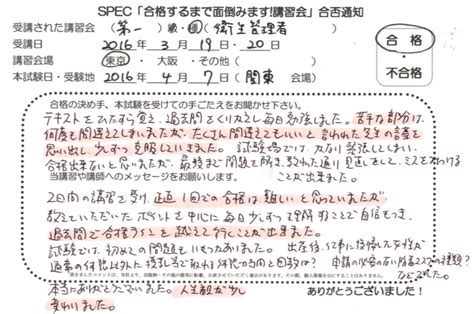 SPEC「合格するまで面倒みます!講習会」合否通知
受講された講習会（第一）級・種（衛生管理者）
受講日 2016年3月19日・20日
講習会場 東京・大阪・その他（ ）
本試験日・受験地 2016年4月7日（関東 会場）
合格
・
不合格
合格の決め手、本試験を受けての手ごたえをお聞かせ下さい。
テキストをひたすら覚え、過去問をくり返えし毎日勉強しました。苦手な部分は
何度も間違えてしまいましたが、たくさん間違えてもいいと言われた先生の言葉を
思い出し、少しずつ克服していきました。試験場では、かなり緊張してしまい、
合格出来ないと思いましたが、最後まで問題を解き、教わった通り見直しをして、ミスを見つける
ことが出来ました。
当講習や講師へのメッセージをお願いします。
2日間の講習を受け、正直1回での合格は難しいと思っていましたが
教えていただいたポイントを中心に毎日少しずつ理解することで自信をもち、
過去問で合格ラインを越えて行くことが出来ました。
試験では、初めての問題もいくつかありました。
本当にありがとうございました。人生観が少し
変わりました。
ありがとうございました！